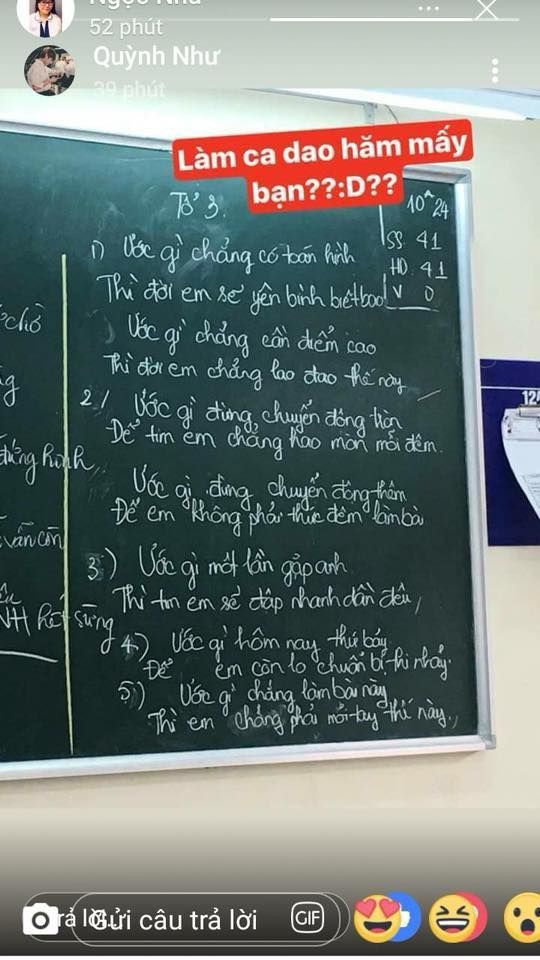 Ngọc Như
52 phút
Quỳnh Như
39 phút
Làm ca dao hăm mấy
bạn??:D??
Tổ 3.
10A24
SS 41
HD 41
V 0
1) Ước gì chẳng có toán hình
Thì đời em sẽ yên bình biết bao
Ước gì chẳng cần điểm cao
Thì đời em chẳng lao đao thế này
2/ Ước gì đừng chuyển động tròn
Để tim em chẳng hao mòn mỗi đêm.
Ước gì đừng chuyển động thêm
Để em không phải thức đêm làm bài
3) Ước gì một lần gặp anh
Thì tim em sẽ đập nhanh dần đều,
4) Ước gì hôm nay thứ bảy
Để em còn lo chuẩn bị thi nhảy.
5) Ước gì chẳng làm bài này
Thì em chẳng phải mỏi tay thế này.,
chỗ
g
đứng hình
vẫn còn
NH hết sừng
12A
Gửi câu trả lời
GIF